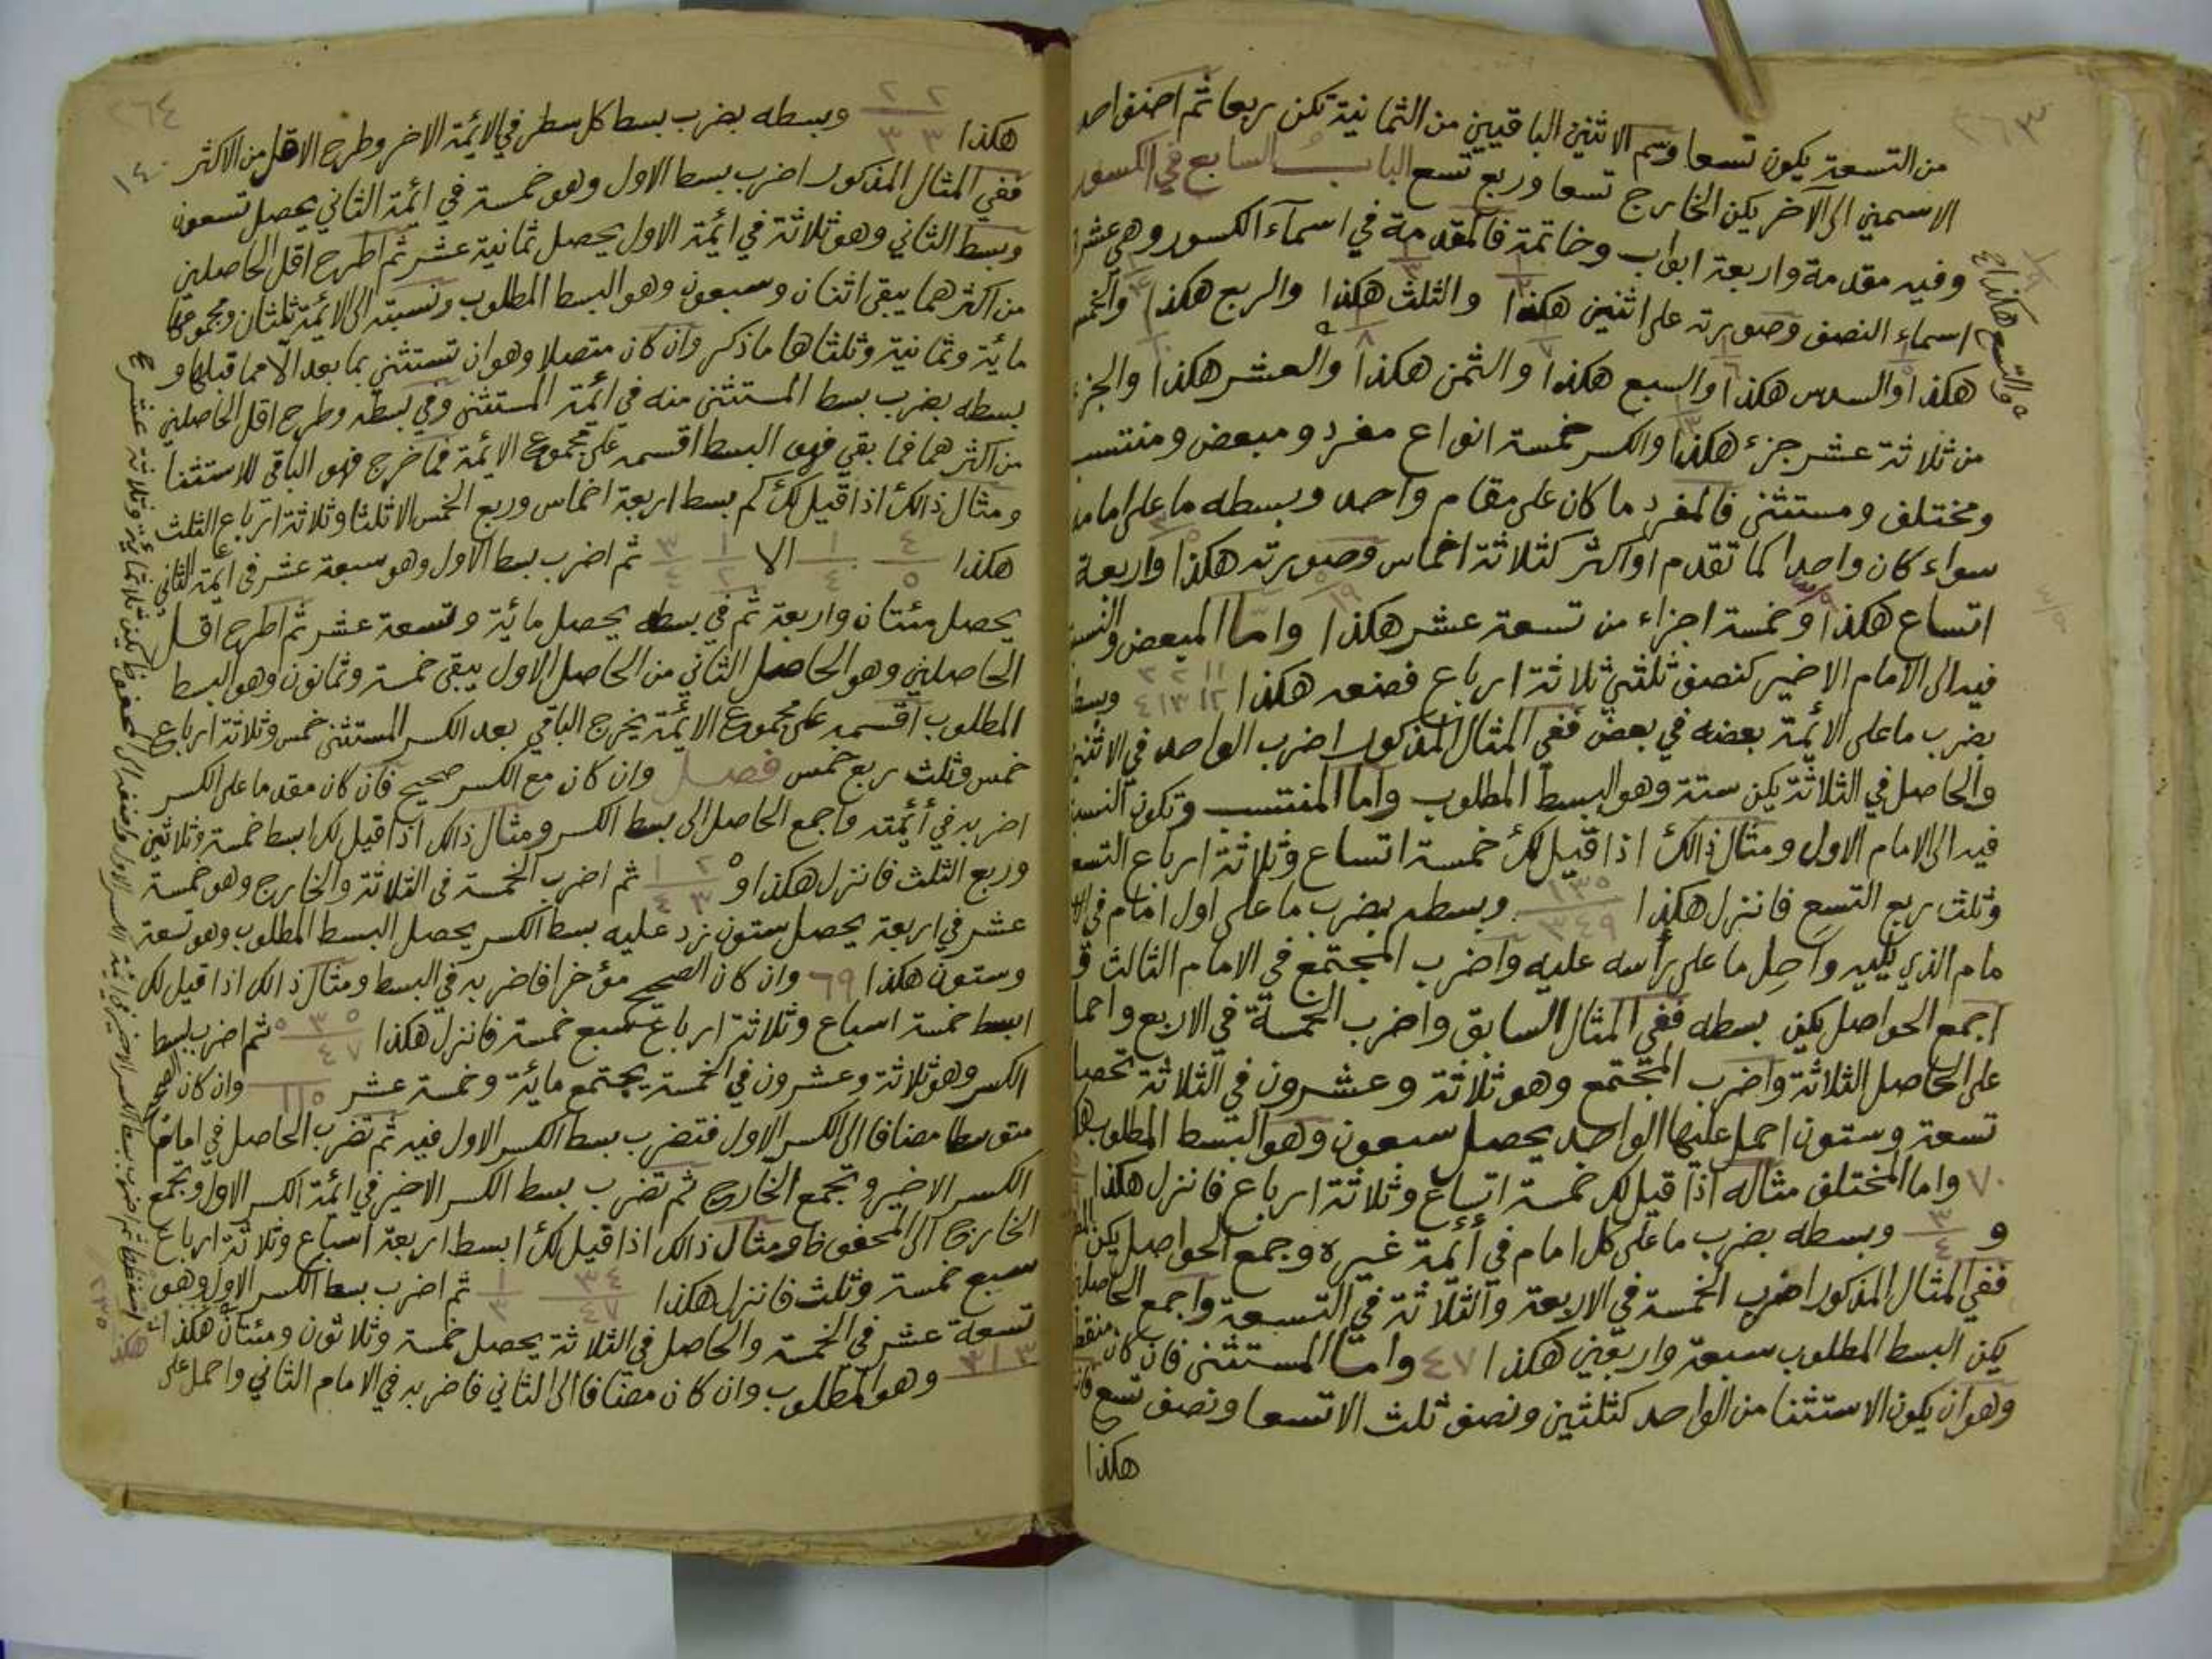 ٢٦٣
من التسعة يكون تسعا وسم الاثنين الباقيين من الثمانية تكن ربعا ثم اضف احد
الاسمين الى الآخر يكن الخارج تسعا وربع تسع الباب السابع في الكسور
وفيه مقدمة واربعة ابواب وخاتمة فالمقدمة في اسمآء الكسور وهي عشرة
اسماء النصف وصورته على اثنين هكذا والثلث هكذا والربع هكذا والخمس
هكذا والسدس هكذا والسبع هكذا والثمن هكذا والعشر هكذا والجزء
من ثلاثة عشر جزء هكذا والكسر خمسة انواع مفرد ومبعض ومنتسب
ومختلف ومستثنى فالمفرد ما كان على مقام واحد وبسطه ما على امامه
سواء كان واحدا كما تقدم او اكثر كثلاثة اخماس وصورته هكذا واربعة
اتساع هكذا وخمسة اجزاء من تسعة عشر هكذا واما المبعض والنسبة
فيه الى الامام الاخير كنصف ثلثي ثلاثة ارباع فضعه هكذا وبسطه
بضرب ما على الائمة بعضه في بعض ففي المثال المذكور اضرب الواحد في الاثنين
والحاصل في الثلاثة يكن ستة وهو البسط المطلوب واما المنتسب وتكون النسبة
فيه الى الامام الاول ومثال ذالك اذا قيل لك خمسة اتساع وثلاثة ارباع التسع
وثلث ربع التسع فانزل هكذا وبسطه بضرب ما على اول امام في الا
مام الذي يليه واحمل ما على رأسه عليه واضرب المجتمع في الامام الثالث و
اجمع الحواصل يكن بسطه ففي المثال السابق واضرب الخمسة في الاربع واحمل
على الحاصل الثلاثة واضرب المجتمع وهو ثلاثة وعشرون في الثلاثة تحصل
تسعة وستون احمل عليها الواحد يحصل سبعون وهو البسط المطلوب هكذا
٧٠ واما المختلف مثاله اذا قيل لك خمسة اتساع وثلاثة ارباع فانزل هكذا
و ٣/٤ وبسطه بضرب ما على كل امام في أئمة غيره وجمع الحواصل يكن
ففي المثال المذكور اضرب الخمسة في الاربعة والثلاثة في التسعة واجمع الحاصلين
يكن البسط المطلوب سبعة واربعين هكذا ٤٧ واما المستثنى فان كان منقطعا
وهو ان يكون الاستثنا من الواحد كثلثين ونصف ثلث الا تسعا ونصف تسع فانزل
هكذا
والتسع هكذا
٢٦٤
١٤٠
هكذا ٢ ٢ / ٣ ٣ وبسطه بضرب بسط كل سطر في الائمة الاخر وطرح الاقل من الاكثر
ففي المثال المذكور اضرب بسط الاول وهو خمسة في ائمة الثاني يحصل تسعون
وبسط الثاني وهو ثلاثة في ائمة الاول يحصل ثمانية عشر ثم اطرح اقل الحاصلين
من اكثرهما يبقى اثنان وسبعون وهو البسط المطلوب ونسبته الى الائمة ثلثان ومجموعها
مائة وثمانية وثلثاها ما ذكر وان كان متصلا وهو ان تستثني بما بعد الا مما قبلها و
بسطه بضرب بسط المستثنى منه في ائمة المستثنى وفي بسطه وطرح اقل الحاصلين
من اكثرهما فما بقي فهو البسط اقسمه على مجموع الائمة فما خرج فهو الباقي للاستثنا
ومثال ذالك اذا قيل لك كم بسط اربعة اخماس وربع الخمس الا ثلثا وثلاثة ارباع الثلث
هكذا ٤/٥ ١/٤ الا ثم اضرب بسط الاول وهو سبعة عشر في ائمة الثاني
يحصل مئتان واربعة ثم في بسطه يحصل مائة وتسعة عشر ثم اطرح اقل
الحاصلين وهو الحاصل الثاني من الحاصل الاول يبقى خمسة وثمانون وهو البسط
المطلوب اقسمه على مجموع الائمة يخرج الباقي بعد الكسر المستثنى خمس وثلاثة ارباع
خمس وثلث ربع خمس فصل وان كان مع الكسر صحيح فان كان مقدما على الكسر
اضربه في أئمته واجمع الحاصل الى بسط الكسر ومثال ذالك اذا قيل لك ابسط خمسة وثلاثين
وربع الثلث فانزل هكذا و ٥ ٢/٣ ١/٤ ثم اضرب الخمسة في الثلاثة والخارج وهو خمسة
عشر في اربعة يحصل ستون زد عليه بسط الكسر يحصل البسط المطلوب وهو تسعة
وستون هكذا ٦٩ وان كان الصحيح مؤخرا فاضربه في البسط ومثال ذالك اذا قيل لك
ابسط خمسة اسباع وثلاثة ارباع سبع خمسة فانزل هكذا ٥ ٣ ٥ / ٧ ٤ ثم اضرب بسط
الكسر وهو ثلاثة وعشرون في الخمسة يجتمع مائة وخمسة عشر ١١٥ وان كان
متوسطا مضافا الى الكسر الاول فتضرب بسط الكسر الاول فيه ثم تضرب الحاصل في امام
الكسر الاخير وتجمع الخارج ثم تضرب بسط الكسر الاخير في ائمة الكسر الاول وتجمع
الخارج الى المحفوظ ومثال ذالك اذا قيل لك ابسط اربعة اسباع وثلاثة ارباع
سبع خمسة وثلث فانزل هكذا ٤ ٣ / ٧ ٤ ١/٣ ثم اضرب بسط الكسر الاول وهو
تسعة عشر في الخمسة والحاصل في الثلاثة يحصل خمسة وثلاثون ومئتان هكذا
وهو المطلوب وان كان مضافا الى الثاني فاضربه في الامام الثاني واحمل على